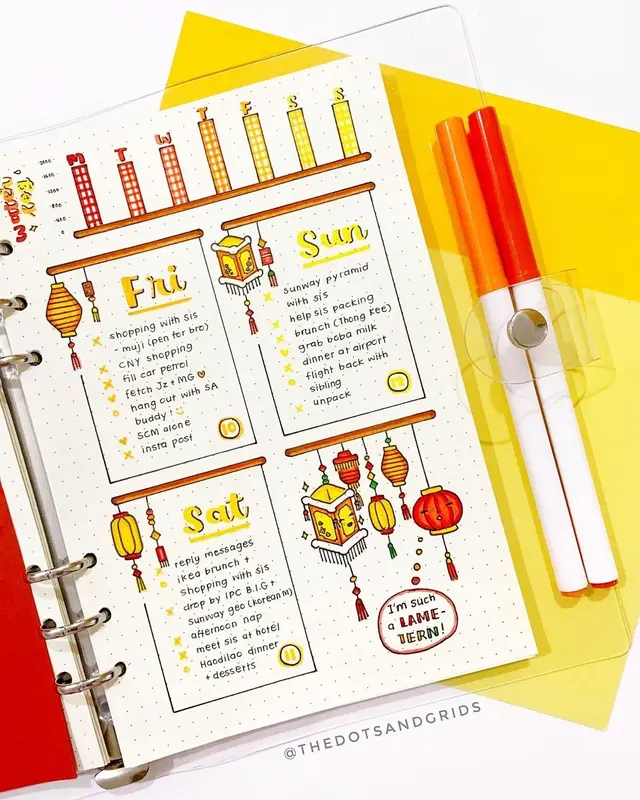 M T W T F S S
2000
Fri
shopping with sis
- muji (pen for bro)
CNY shopping
fill car petrol
fetch Jz + MG
hang out with SA
buddy!
SCM alone
insta post
10
Sun
sunway pyramid
with sis
help sis packing
brunch (Thong Kee)
grab boba milk
dinner at airport
flight back with
sibling
unpack
12
Sat
reply messages
ikea brunch +
shopping with sis
drop by IPC B.I.G +
sunway geo (koreanm)
afternoon nap
meet sis at hotel
Haodilao dinner
+ desserts
11
I'm such
a LAME-
TERN!
@THEDOTSANDGRIDS